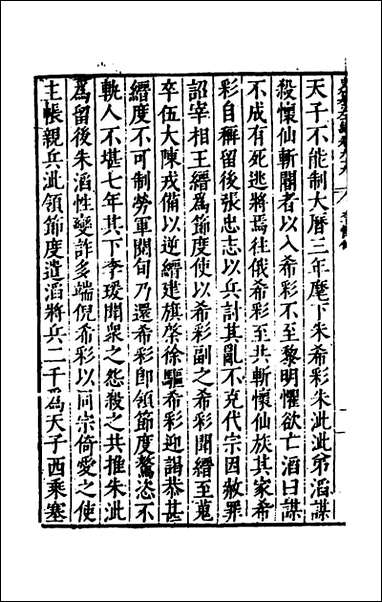 天子不能制大曆三年麾下朱希彩朱泚泚弟滔謀
殺懷仙斬閽者以入希彩不至黎明懼欲亡滔曰謀
不成有死逃將焉往俄希彩至共斬懷仙族其家希
彩自稱留後張忠志以兵討其亂不克代宗因赦罪
詔宰相王縉爲節度使以希彩副之希彩聞縉至蒐
卒伍大陳戎備以逆縉建旗棨徐驅希彩迎謁恭甚
縉度不可制勞軍閱旬乃還希彩即領節度驁恣不
軌人不堪七年其下李瑗間衆之怨殺之共推朱泚
爲留後朱滔性變詐多端倪希彩以同宗倚愛之使
主帳親兵泚領節度遣滔將兵二千爲天子西乘塞